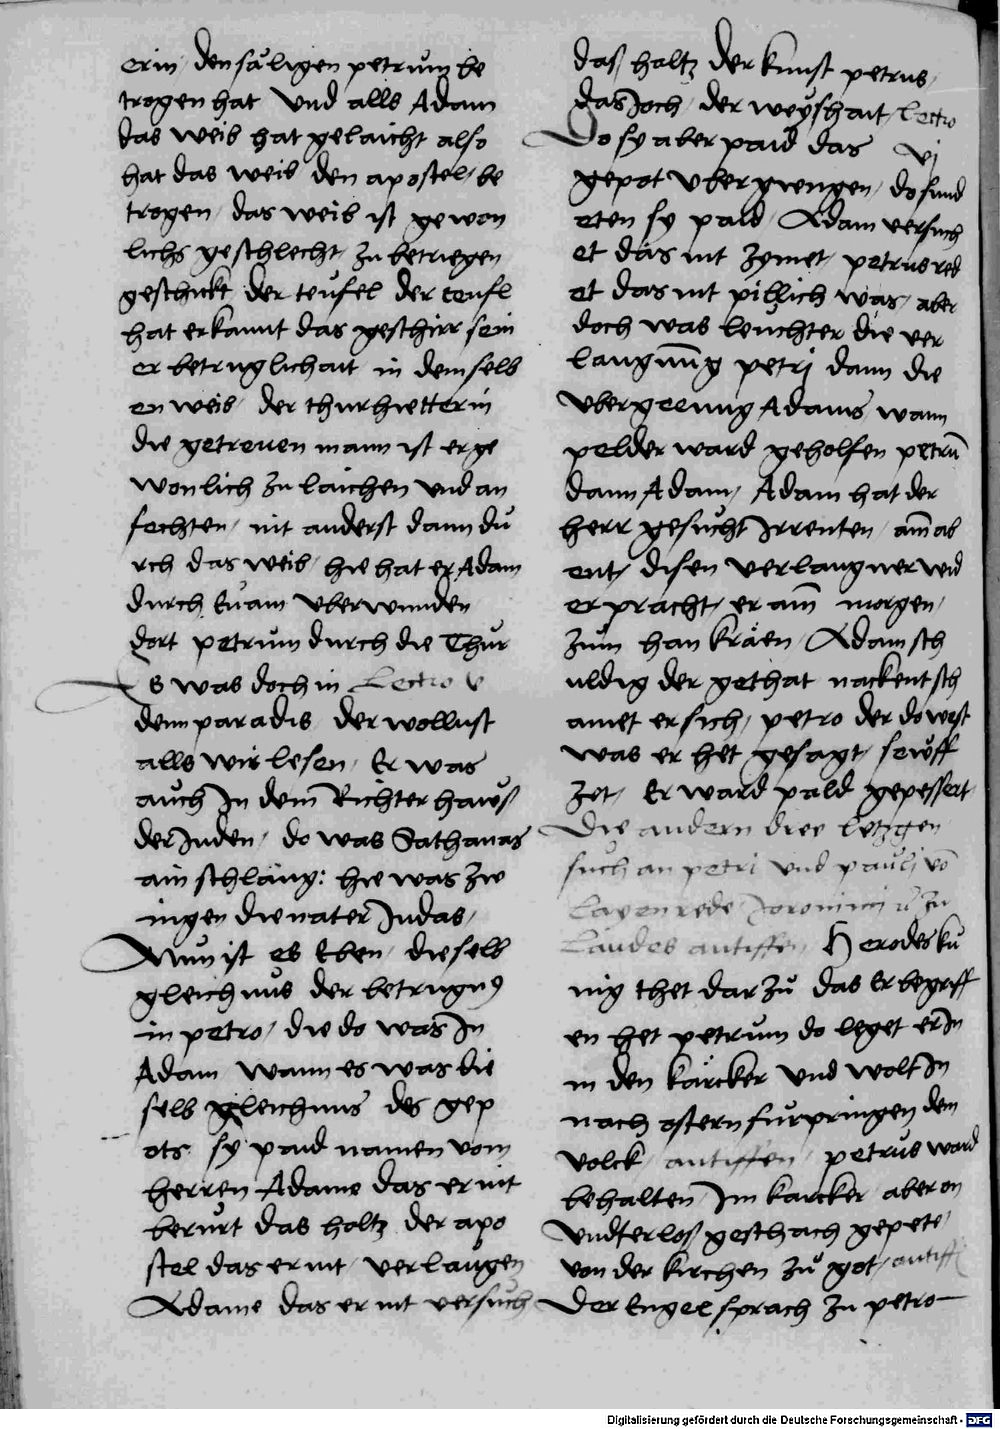 erin / den såligen petrum be
trogen hat Und alls Adam
das weib hat gelaicht also
hat das weib den apostel / be
trogen / das weib ist gewon
lichs geschlecht / zu betriegen
geschickt / der teufel der teufl
hat erkannt das geschirr sein
er betruglichait in demselb
en weib / der thurhietterin
die getreuen mann ist er ge
wonlich zu laichen und an
fechten / nit anderst dann du
rch das weib / hie hat er Adam
durch Evam uberwunden /
dort petrum durch die Thur
Es was doch in Lectio v
dem paradis / der wollust
alls wir lesen / Er was
auch In dem Richterhaws
der Juden / do was Sathanas
ain schlang : hie was zw
ingen die nater Judas /
Nun ist es Eben / dieselb
gleichnus der betrugnus
in petro / die do was In
Adam wann es was die
selb gleichnus des gep
ots sy paid namen vom
herren Adame das er nit
berürt das holtz der apo
stel das er nit / verlaugen
Adame das er nit versuch
das holtz der kunst petrus /
das Joch / der weyshait / Lectio
Do sy aber paid das vj
gepot ubergiengen / do fund
eten sy paid / Adam versuch
et das nit zymet / petrus red
et das nit pillich was / aber
doch was leuchter die ver
laugnung petri dann die
ubergeeung Adams wann
pelder ward geholfen petrum̄
dann Adam / Adam hat der
herr gesucht Irrenten / am̄ ab
ent / disen verlaugner wid
er pracht / er am̄ morgen /
zům han kräen / Adam sch
uldig der gethat nackent sch
amet er sich / petro der do west
was er het gesagt / sewff
zet / Er ward pald gepessert
Die andern drei letzgen
such an petri und pauli võ
Layenrede Jeronimi ů zu
Laudes antiffen / Herodes ku
nig thet darzů das Er begriff
en het petrum do leget er In
in den kärcker Und wolt In
nach ostern furpringen dem
volck / antiffen / petrus ward
behalten / Im karcker / aber on
Undterlos geschach gepete /
von der kirchen zů got / antiff
Der Engel sprach zu petro
Digitalisierung gefördert durch die Deutsche Forschungsgemeinschaft - DFG